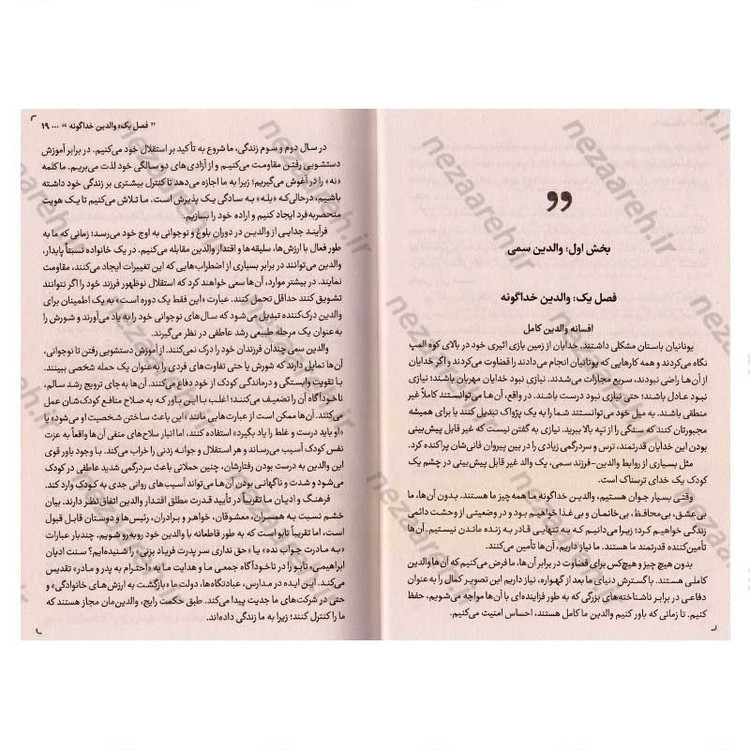 بخش اول: والدین سمی
فصل یک: والدین خداگونه
افسانه والدین کامل
یونانیان باستان مشکلی داشتند. خدایان از زمین بازی اثیری خود در بالای کوه المپ
نگاه می‌کردند و همه کارهایی که یونانیان انجام می‌دادند را قضاوت می‌کردند و اگر خدایان
از آن‌ها راضی نبودند، سریع مجازات می‌شدند. نیازی نبود خدایان مهربان باشند؛ نیازی
نبود عادل باشند؛ حتی نیازی نبود درست باشند. در واقع، آن‌ها می‌توانستند کاملاً غیر
منطقی باشند. به میل خود می‌توانستند شما را به یک پژواک تبدیل کنند یا برای همیشه
مجبورتان کنند که سنگی را از تپه بالا ببرید. نیازی به گفتن نیست که غیر قابل پیش‌بینی
بودن این خدایان قدرتمند، ترس و سردرگمی زیادی را در بین پیروان فانی‌شان پراکنده کرد.
مثل بسیاری از روابط والدین-فرزند سمی، یک والد غیر قابل پیش‌بینی در چشم یک
کودک یک خدای ترسناک است.
وقتی بسیار جوان هستیم، والدین خداگونه ما همه چیز ما هستند. بدون آن‌ها، ما
بی‌عشق، بی‌محافظ، بی‌خانمان و بی‌غذا خواهیم بود و در وضعیتی از وحشت دائمی
زندگی خواهیم کرد؛ زیرا می‌دانیم که به تنهایی قادر به زنده ماندن نیستیم. آن‌ها
تأمین‌کننده قدرتمند ما هستند. ما نیاز داریم، آن‌ها تأمین می‌کنند.
بدون هیچ چیز و هیچ‌کس برای قضاوت در برابر آن‌ها، ما فرض می‌کنیم که آن‌ها والدین
کاملی هستند. با گسترش دنیای ما بعد از گهواره، نیاز داریم این تصویر کمال را به‌عنوان
دفاعی در برابر ناشناخته‌های بزرگی که به طور فزاینده‌ای با آن‌ها مواجه می‌شویم، حفظ
کنیم. تا زمانی که باور کنیم والدین ما کامل هستند، احساس امنیت می‌کنیم.
" فصل یک: والدین خداگونه " ... ۱۹
در سال دوم و سوم زندگی، ما شروع به تأکید بر استقلال خود می‌کنیم. در برابر آموزش
دستشویی رفتن مقاومت می‌کنیم و از آزادی‌های دو سالگی خود لذت می‌بریم. ما کلمه
«نه» را در آغوش می‌گیریم؛ زیرا به ما اجازه می‌دهد تا کنترل بیشتری بر زندگی خود داشته
باشیم، درحالی‌که «بله» به سادگی یک پذیرش است. ما تلاش می‌کنیم تا یک هویت
منحصربه‌فرد ایجاد کنیم و اراده خود را بسازیم.
فرآیند جدایی از والدین در دوران بلوغ و نوجوانی به اوج خود می‌رسد؛ زمانی که ما به
طور فعال با ارزش‌ها، سلیقه‌ها و اقتدار والدین مقابله می‌کنیم. در یک خانواده نسبتاً پایدار،
والدین می‌توانند در برابر بسیاری از اضطراب‌هایی که این تغییرات ایجاد می‌کنند، مقاومت
نمایند. در بیشتر موارد، آن‌ها سعی خواهند کرد که استقلال نوظهور فرزند خود را اگر نتوانند
تشویق کنند حداقل تحمل کنند. عبارت «این فقط یک دوره است» به یک اطمینان برای
والدین درک‌کننده تبدیل می‌شود که سال‌های نوجوانی خود را به یاد می‌آورند و شورش را
به عنوان یک مرحله طبیعی رشد عاطفی در نظر می‌گیرند.
والدین سمی چندان فرزندان خود را درک نمی‌کنند. از آموزش دستشویی رفتن تا نوجوانی،
آن‌ها تمایل دارند که شورش یا حتی تفاوت‌های فردی را به‌عنوان یک حمله شخصی ببینند.
با تقویت وابستگی و درماندگی کودک از خود دفاع می‌کنند. آن‌ها به جای ترویج رشد سالم،
ناخودآگاه آن را تضعیف می‌کنند؛ اغلب با این باور که به صلاح منافع کودک‌شان عمل
می‌کنند. آن‌ها ممکن است از عبارت‌هایی مانند «این باعث ساختن شخصیت او می‌شود» یا
«او باید درست و غلط را یاد بگیرد» استفاده کنند، اما انبار سلاح‌های منفی آن‌ها واقعاً به عزت
نفس کودک آسیب می‌رساند و هر استقلال و جوانه زدنی را خراب می‌کند. با وجود باور قوی
این والدین به درست بودن رفتارشان، چنین حملاتی باعث سردرگمی شدید عاطفی در کودک
می‌شود و شدت و ناگهانی بودن آن‌ها می‌تواند آسیب‌های روانی جدی به کودک وارد کند.
فرهنگ و ادیان ما تقریباً در تأیید قدرت مطلق اقتدار والدین اتفاق‌نظر دارند. بیان
خشم نسبت به همسران، معشوقان، خواهر و برادران، رئیس‌ها و دوستان قابل قبول
است، اما تقریباً تابو است که به طور قاطعانه با والدین خود روبه‌رو شویم. چندبار عبارات
«به مادرت جواب نده» یا «حق نداری سر پدرت فریاد بزنی» را شنیده‌ایم؟ سنت ادیان
ابراهیمی، تابو را در ناخودآگاه جمعی ما و هدایت ما به «احترام به پدر و مادر» تقدیس
می‌کند. این ایده در مدارس، عبادتگاه‌ها، دولت ما «بازگشت به ارزش‌های خانوادگی» و
حتی در شرکت‌های ما جدیت پیدا می‌کند. طبق حکمت رایج، والدین‌مان مجاز هستند که
ما را کنترل کنند؛ زیرا به ما زندگی داده‌اند.
nezaareh.ir